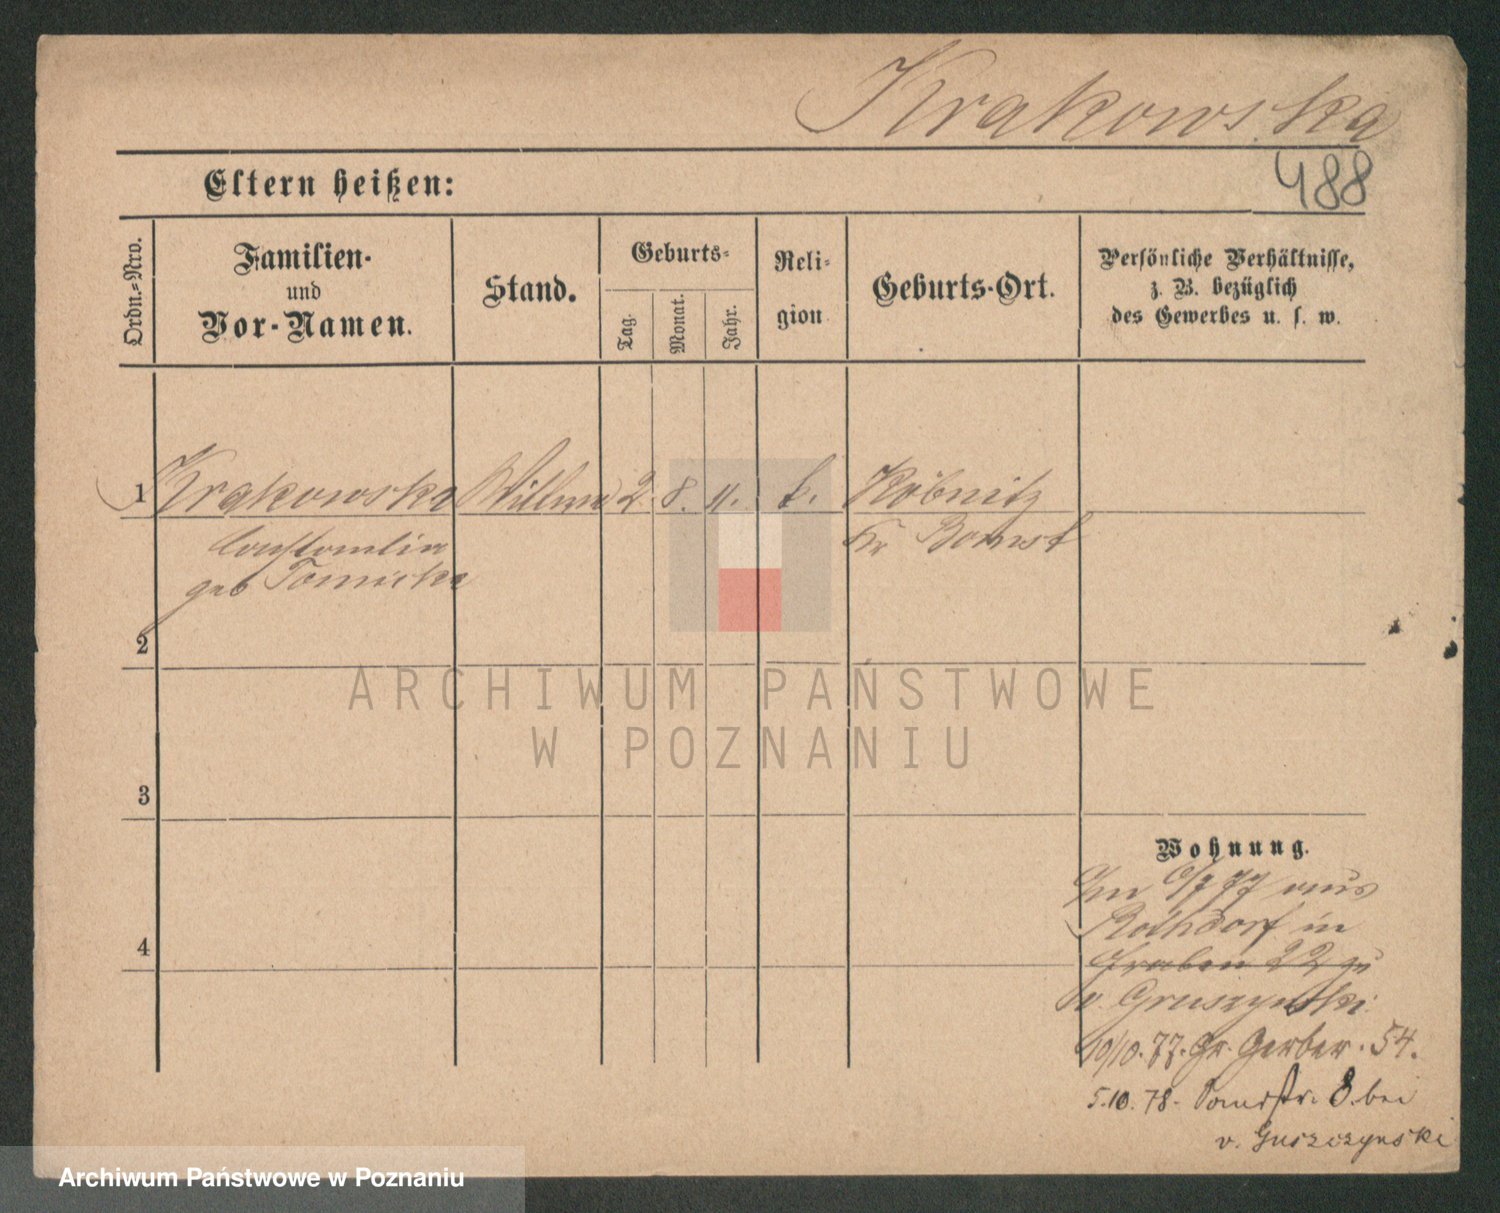 Krakowska
488
Eltern heißen:
Ordn.-Nro.
Familien-
und
Vor-Namen.
Stand.
Geburts-
Tag.
Monat.
Jahr.
Reli-
gion
Geburts-Ort.
Persönliche Verhältnisse,
z. B. bezüglich
des Gewerbes u. s. w.
1 Krakowska 2. 8. 11. k. Köbnitz
Kr Bomst
geb Tomicka
2
3
4
Wohnung.
Am 6/7 77 aus
Rothdorf in
Graben 22 zu
v. Gruszynski.
10/10. 77. Gr. Gerber. 54.
5.10. 78. Domstr. 8. bei
v. Guszczynski
ARCHIWUM PAŃSTWOWE
W POZNANIU
Archiwum Państwowe w Poznaniu